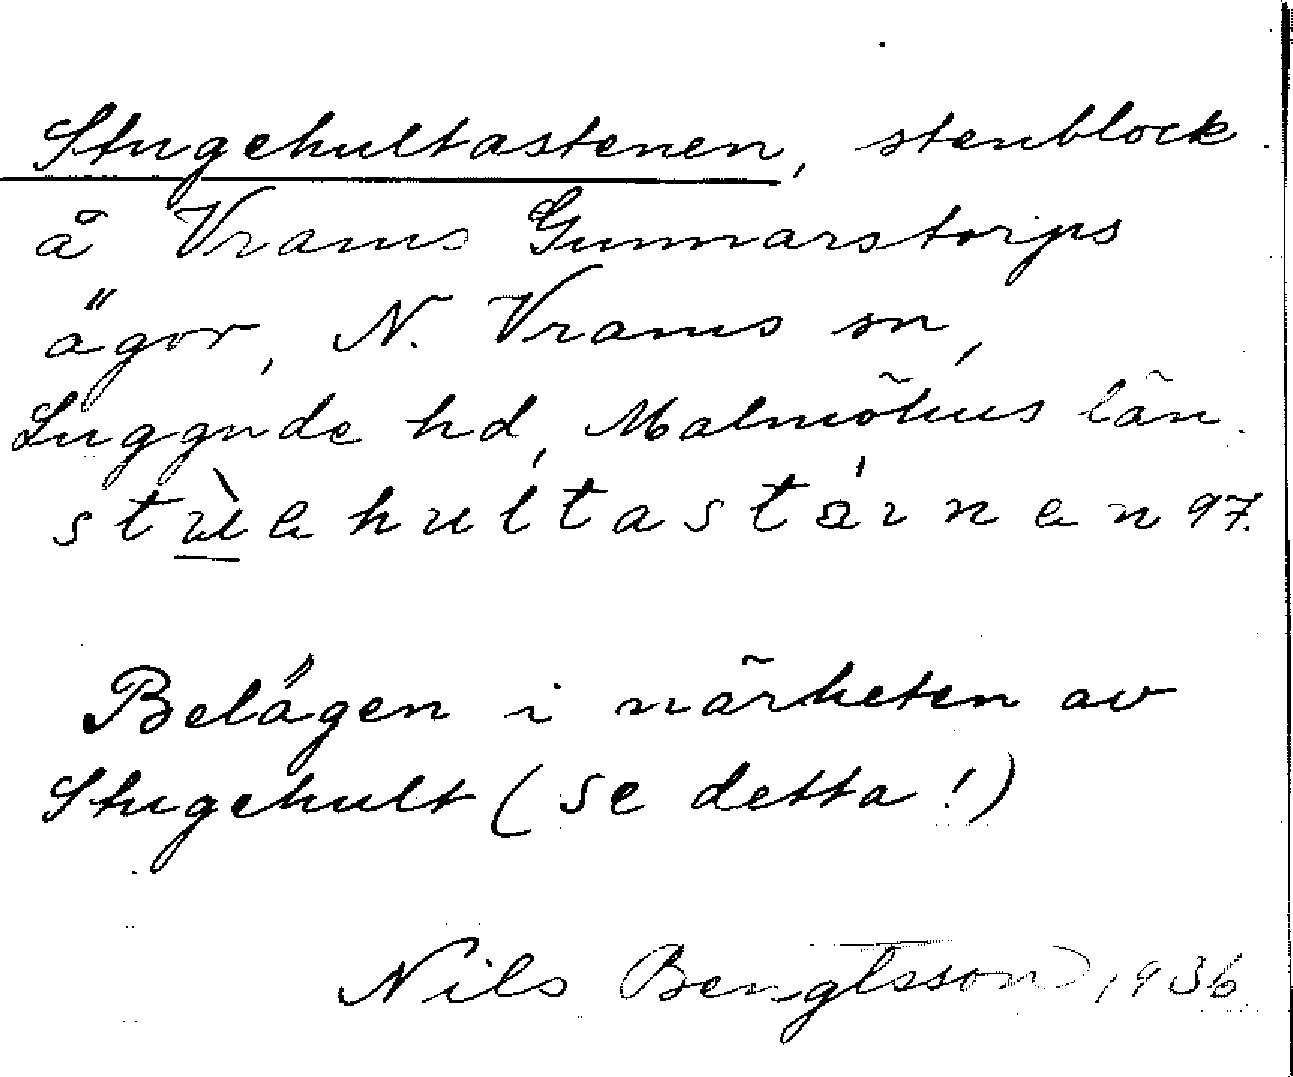 Stugehultastenen, stenblock
å Vrams Gunnarstorps
ägor, N. Vrams sn,
Luggude hd, Malmöhus län.
stùehultastáinen 97.
Belägen i närheten av
Stugehult (se detta!)
Nils Bengtsson 1936